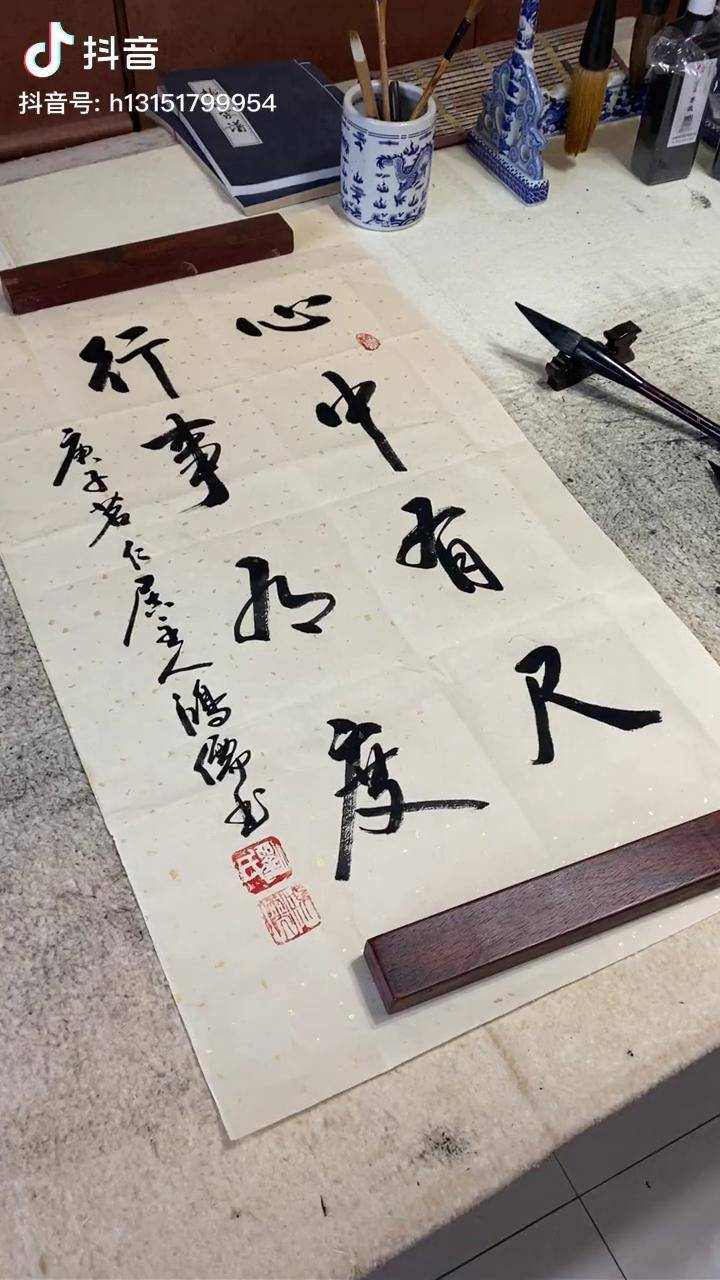 抖音
抖音号: h13151799954
心中有尺
行事有度
庚子茗仁居主人鸿儒书
劉氏